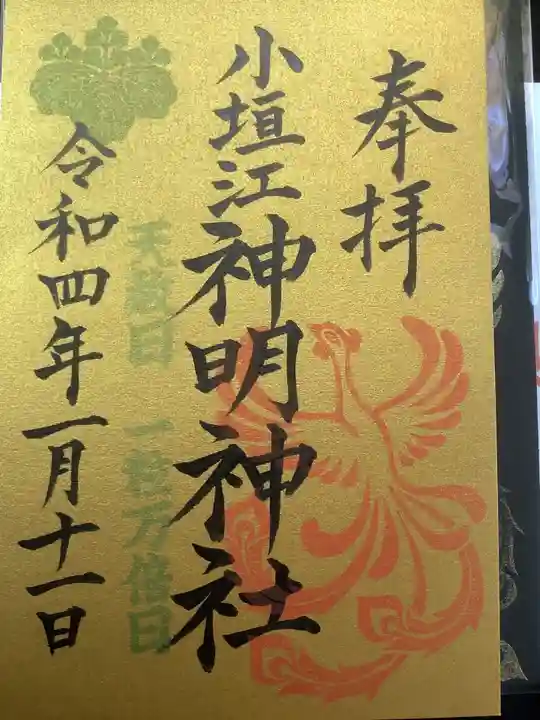 奉拝
小垣江神明神社
天赦日 一粒万倍日
令和四年一月十一日